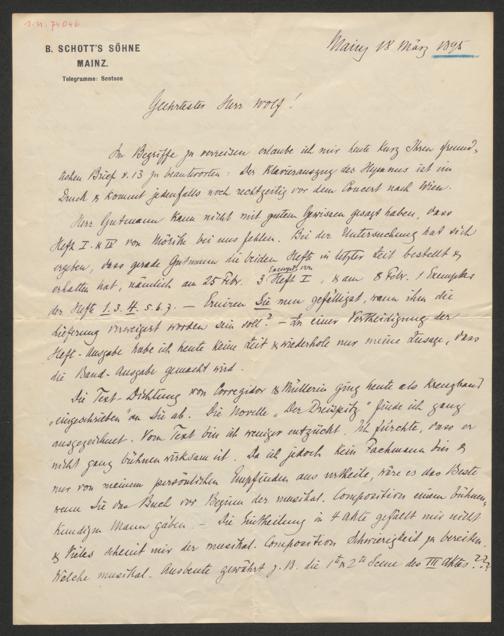 B. SCHOTT'S SÖHNE
MAINZ.
Telegramme: Scotson
Mainz 18 März 1895
Geehrtester Herr Wolf!
Im Begriffe zu verreisen erlaube ich mir heute kurz Ihren freund-
lichen Brief v. 13 zu beantworten: Der Klavierauszug des Hymnus ist im
Druck & kommt jedenfalls noch rechtzeitig vor dem Concert nach Wien.
Herr Gutmann kann nicht mit gutem Gewissen gesagt haben, dass
Heft I & IV von Mörike bei uns fehlen. Bei der Untersuchung hat sich
ergeben, dass gerade Gutmann die beiden Hefte in letzter Zeit bestellt &
erhalten hat, nämlich am 25 Febr. 3 Exempl. von Heft I, & am 8 Febr. 1 Exemplar
der Hefte 1. 3. 4. 5. 6. 7. — Eruiren Sie nun gefälligst, wann ihm die
Lieferung verweigert worden sein soll? — In einer Vertheidigung der
Heft-Ausgabe habe ich heute keine Zeit & wiederhole nur meine Zusage, dass
die Band-Ausgabe gemacht wird.
Die Text-Dichtung von Corregidor & Müllerin ging heute als Kreuzband
"eingeschrieben" an Sie ab. Die Novelle "Der Dreispitz" finde ich ganz
ausgezeichnet. Vom Text bin ich weniger entzückt. Ich fürchte, dass er
nicht ganz bühnenwirksam ist. Da ich jedoch kein Fachmann bin &
nur von meinem persönlichen Empfinden aus urtheile, wäre es das Beste
wenn Sie das Buch vor Beginn der musikal. Composition einem bühnen-
kundigen Mann gäben — Die Eintheilung in 4 Akte gefällt mir nicht
& Vieles scheint mir der musikal. Composition Schwierigkeit zu bereiten.
Welche musikal. Ausbeute gewährt z. B. die 1te & 2te Scene des III Aktes???